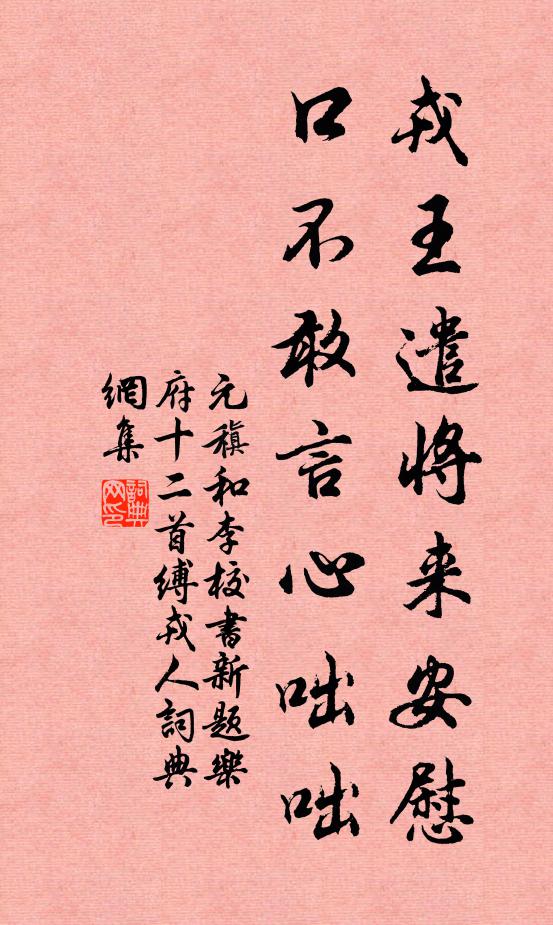 戎王遣将来安慰
口不敢言心咄咄
元稹和李校書新題樂
府十二首縛戎人詞典
網集
詞典
网印